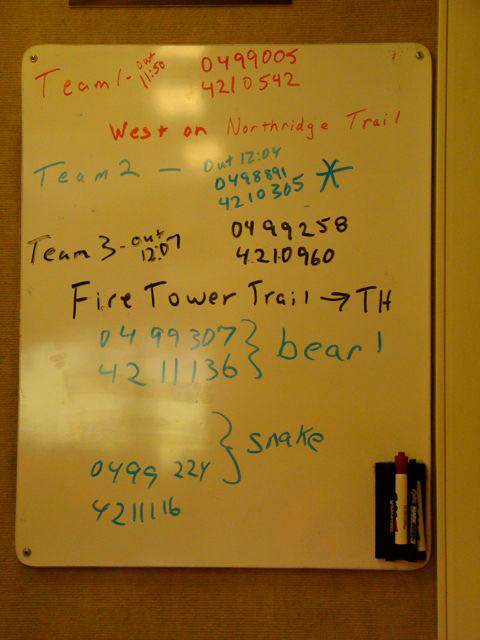 Team 1 - out 11:50
0499005
4210542
West on Northridge Trail
Team 2 - Out 12:04
0498891
4210365 *
Team 3 - out 12:07
0499258
4210960
Fire Tower Trail → TH
0499307
4211136 } bear 1
} snake
0499 224
4211116